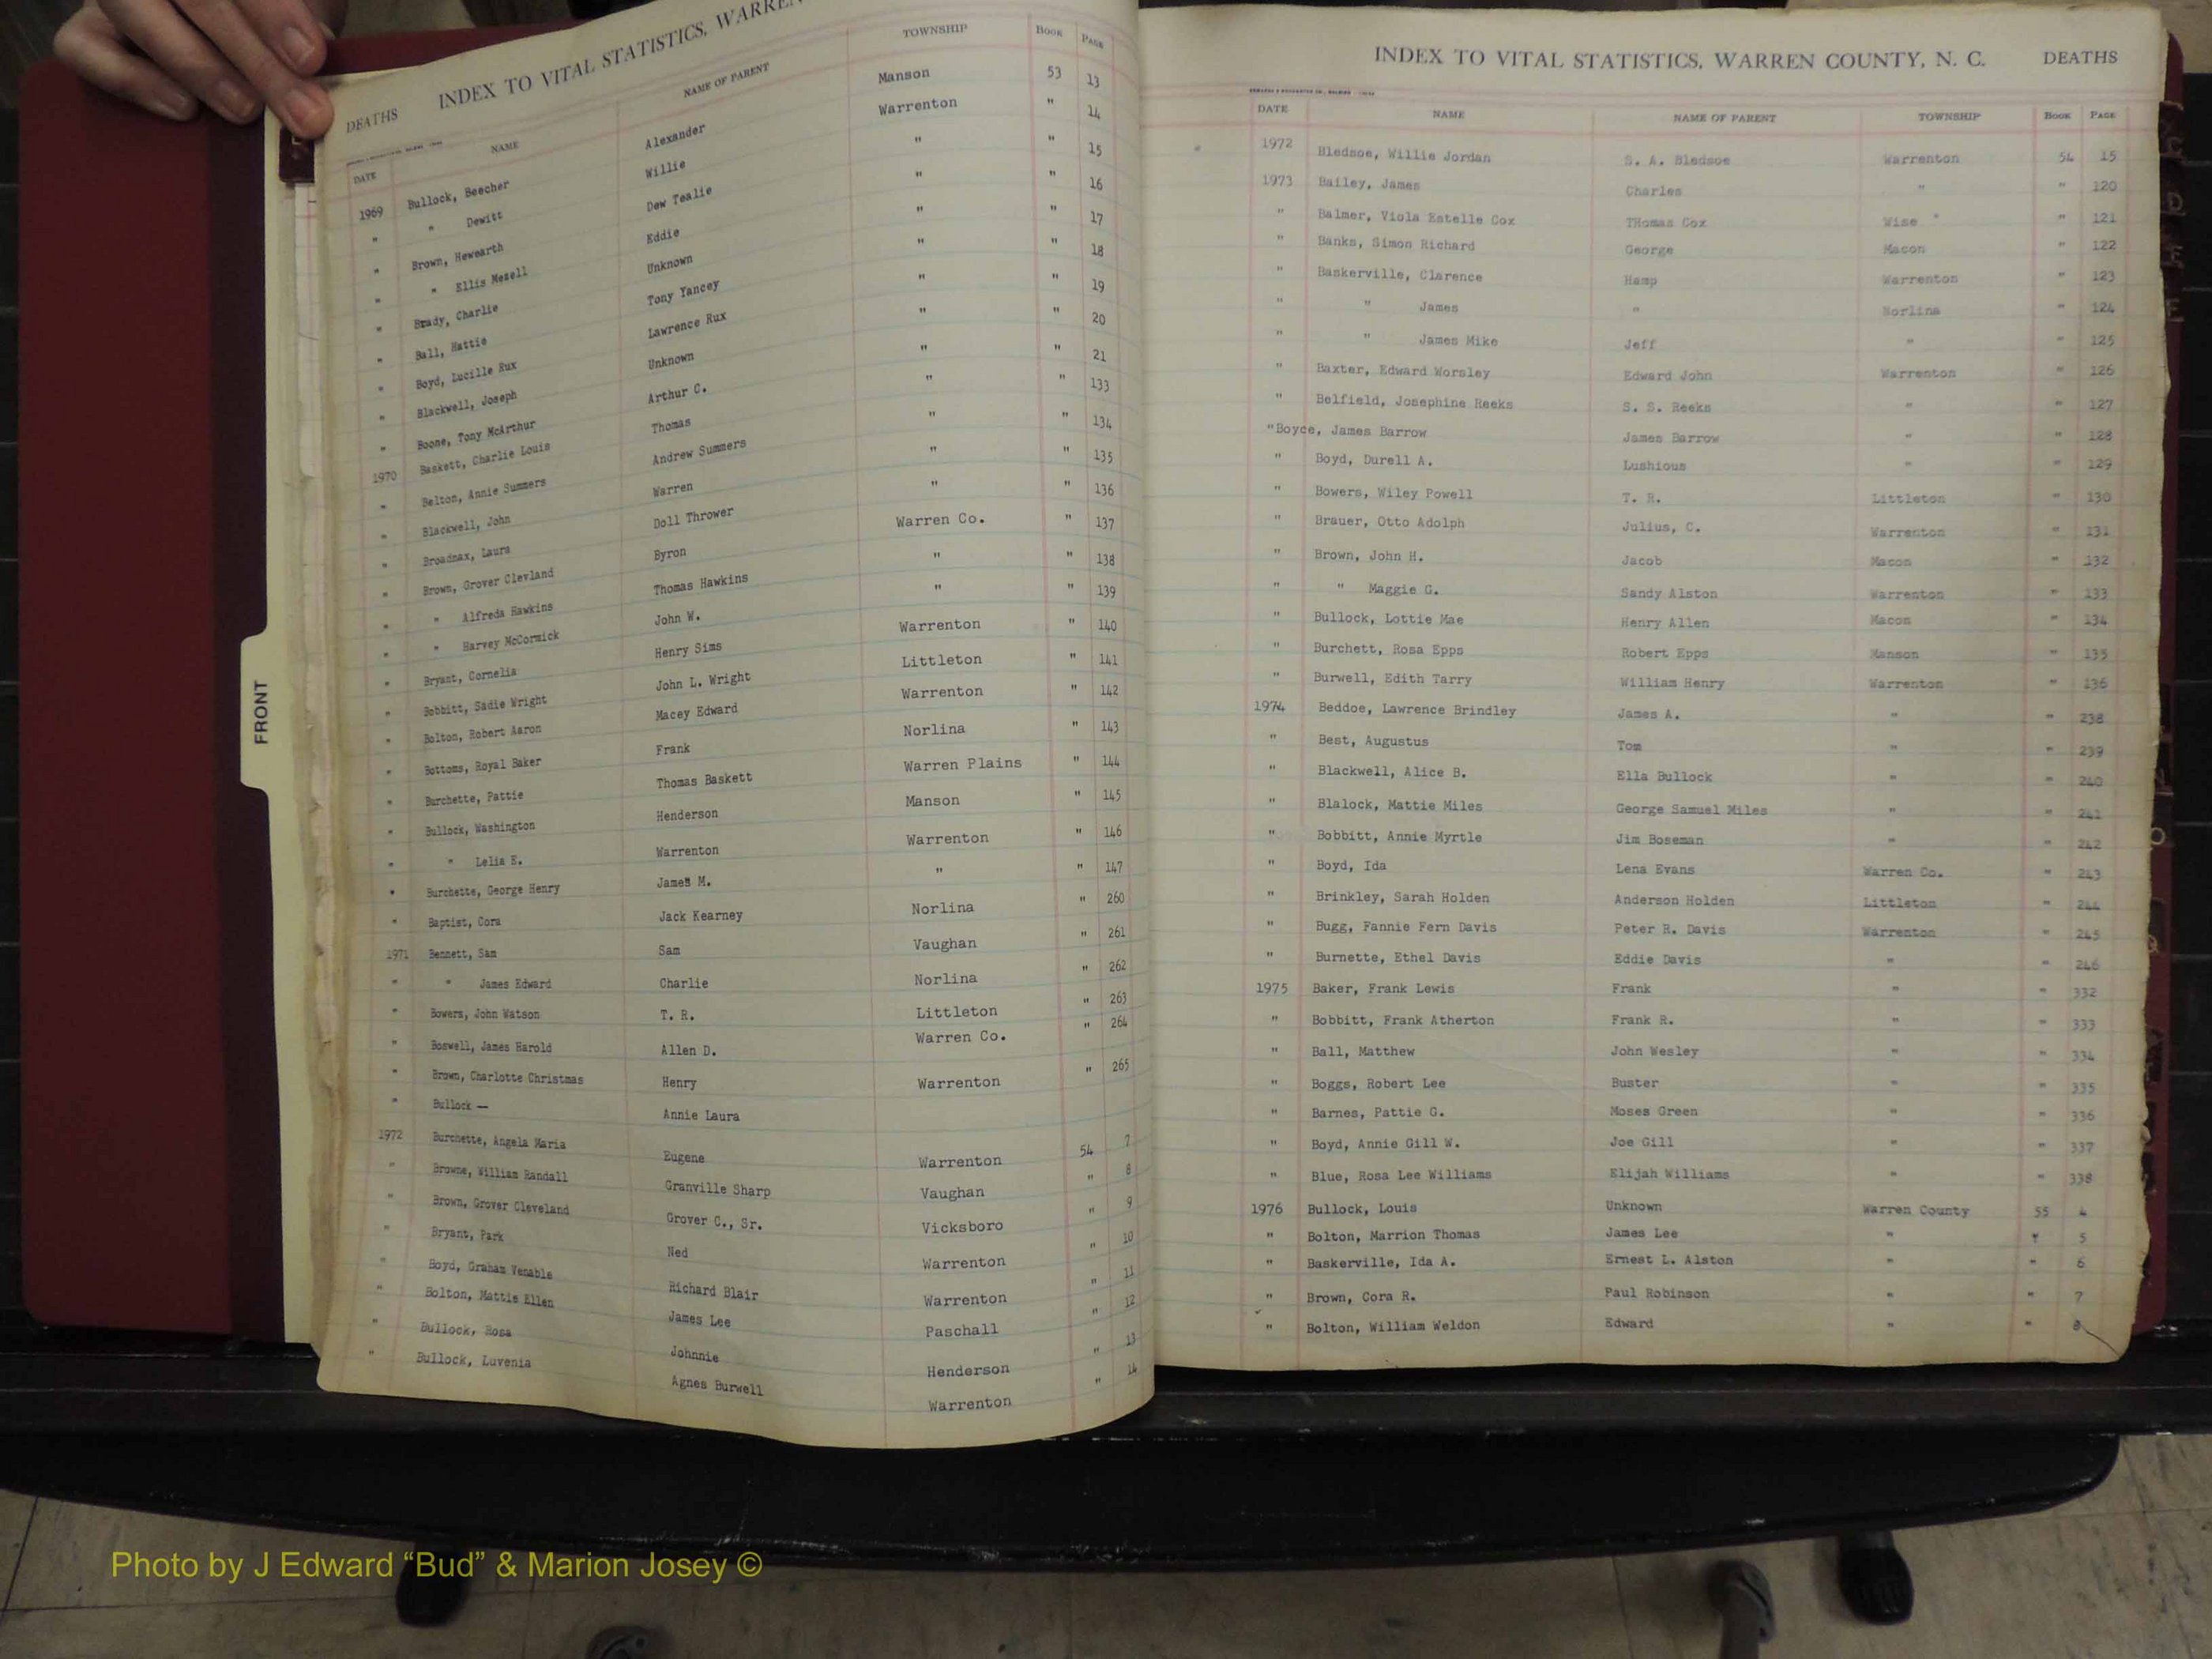 DEATHS INDEX TO VITAL STATISTICS, WARREN
DATE NAME NAME OF PARENT TOWNSHIP BOOK PAGE
1969 Bullock, Beecher Alexander Manson 53 13
" " Dewitt Willie Warrenton " 14
" Brown, Hewearth Dew Tealie " " 15
" " Ellis Mezell Eddie " " 16
" Brady, Charlie Unknown " " 17
" Ball, Hattie Tony Yancey " " 18
" Boyd, Lucille Rux Lawrence Rux " " 19
" Blackwell, Joseph Unknown " " 20
" Boone, Tony McArthur Arthur C. " " 21
1970 Baskett, Charlie Louis Thomas " " 133
" Belton, Annie Summers Andrew Summers " " 134
" Blackwell, John Warren " " 135
" Broadnax, Laura Doll Thrower " " 136
" Brown, Grover Clevland Byron Warren Co. " 137
" " Alfreda Hawkins Thomas Hawkins " " 138
" " Harvey McCormick John W. " " 139
" Bryant, Cornelia Henry Sims Warrenton " 140
" Bobbitt, Sadie Wright John L. Wright Littleton " 141
" Bolton, Robert Aaron Macey Edward Warrenton " 142
" Bottoms, Royal Baker Frank Norlina " 143
" Burchette, Pattie Thomas Baskett Warren Plains " 144
" Bullock, Washington Henderson Manson " 145
" " Lelia E. Warrenton Warrenton " 146
" Burchette, George Henry James M. " " 147
" Baptist, Cora Jack Kearney Norlina " 260
1971 Bennett, Sam Sam Vaughan " 261
" " James Edward Charlie Norlina " 262
" Bowers, John Watson T. R. Littleton " 263
" Boswell, James Harold Allen D. Warren Co. " 264
" Brown, Charlotte Christmas Henry Warrenton " 265
" Bullock — Annie Laura
1972 Burchette, Angela Maria Eugene Warrenton 54 7
" Browne, William Randall Granville Sharp Vaughan " 8
" Brown, Grover Cleveland Grover C., Sr. Vicksboro " 9
" Bryant, Park Ned Warrenton " 10
" Boyd, Graham Venable Richard Blair Warrenton " 11
" Bolton, Mattie Ellen James Lee Paschall " 12
" Bullock, Rosa Johnnie Henderson " 13
" Bullock, Luvenia Agnes Burwell Warrenton " 14
FRONT
INDEX TO VITAL STATISTICS, WARREN COUNTY, N. C. DEATHS
DATE NAME NAME OF PARENT TOWNSHIP BOOK PAGE
1972 Bledsoe, Willie Jordan S. A. Bledsoe Warrenton 54 15
1973 Bailey, James Charles " " 120
" Balmer, Viola Estelle Cox THomas Cox Wise " " 121
" Banks, Simon Richard George Macon " 122
" Baskerville, Clarence Hamp Warrenton " 123
" " James " Norlina " 124
" " James Mike Jeff " " 125
" Baxter, Edward Worsley Edward John Warrenton " 126
" Belfield, Josephine Reeks S. S. Reeks " " 127
"Boyce, James Barrow James Barrow " " 128
" Boyd, Durell A. Lushious " " 129
" Bowers, Wiley Powell T. R. Littleton " 130
" Brauer, Otto Adolph Julius, C. Warrenton " 131
" Brown, John H. Jacob Macon " 132
" " Maggie G. Sandy Alston Warrenton " 133
" Bullock, Lottie Mae Henry Allen Macon " 134
" Burchett, Rosa Epps Robert Epps Manson " 135
" Burwell, Edith Tarry William Henry Warrenton " 136
1974 Beddoe, Lawrence Brindley James A. " " 238
" Best, Augustus Tom " " 239
" Blackwell, Alice B. Ella Bullock " " 240
" Blalock, Mattie Miles George Samuel Miles " " 241
" Bobbitt, Annie Myrtle Jim Boseman " " 242
" Boyd, Ida Lena Evans Warren Co. " 243
" Brinkley, Sarah Holden Anderson Holden Littleton " 244
" Bugg, Fannie Fern Davis Peter R. Davis Warrenton " 245
" Burnette, Ethel Davis Eddie Davis " " 246
1975 Baker, Frank Lewis Frank " " 332
" Bobbitt, Frank Atherton Frank R. " " 333
" Ball, Matthew John Wesley " " 334
" Boggs, Robert Lee Buster " " 335
" Barnes, Pattie G. Moses Green " " 336
" Boyd, Annie Gill W. Joe Gill " " 337
" Blue, Rosa Lee Williams Elijah Williams " " 338
1976 Bullock, Louis Unknown Warren County 55 4
" Bolton, Marrion Thomas James Lee " " 5
" Baskerville, Ida A. Ernest L. Alston " " 6
" Brown, Cora R. Paul Robinson " " 7
" Bolton, William Weldon Edward " " 8
Photo by J Edward “Bud” & Marion Josey ©